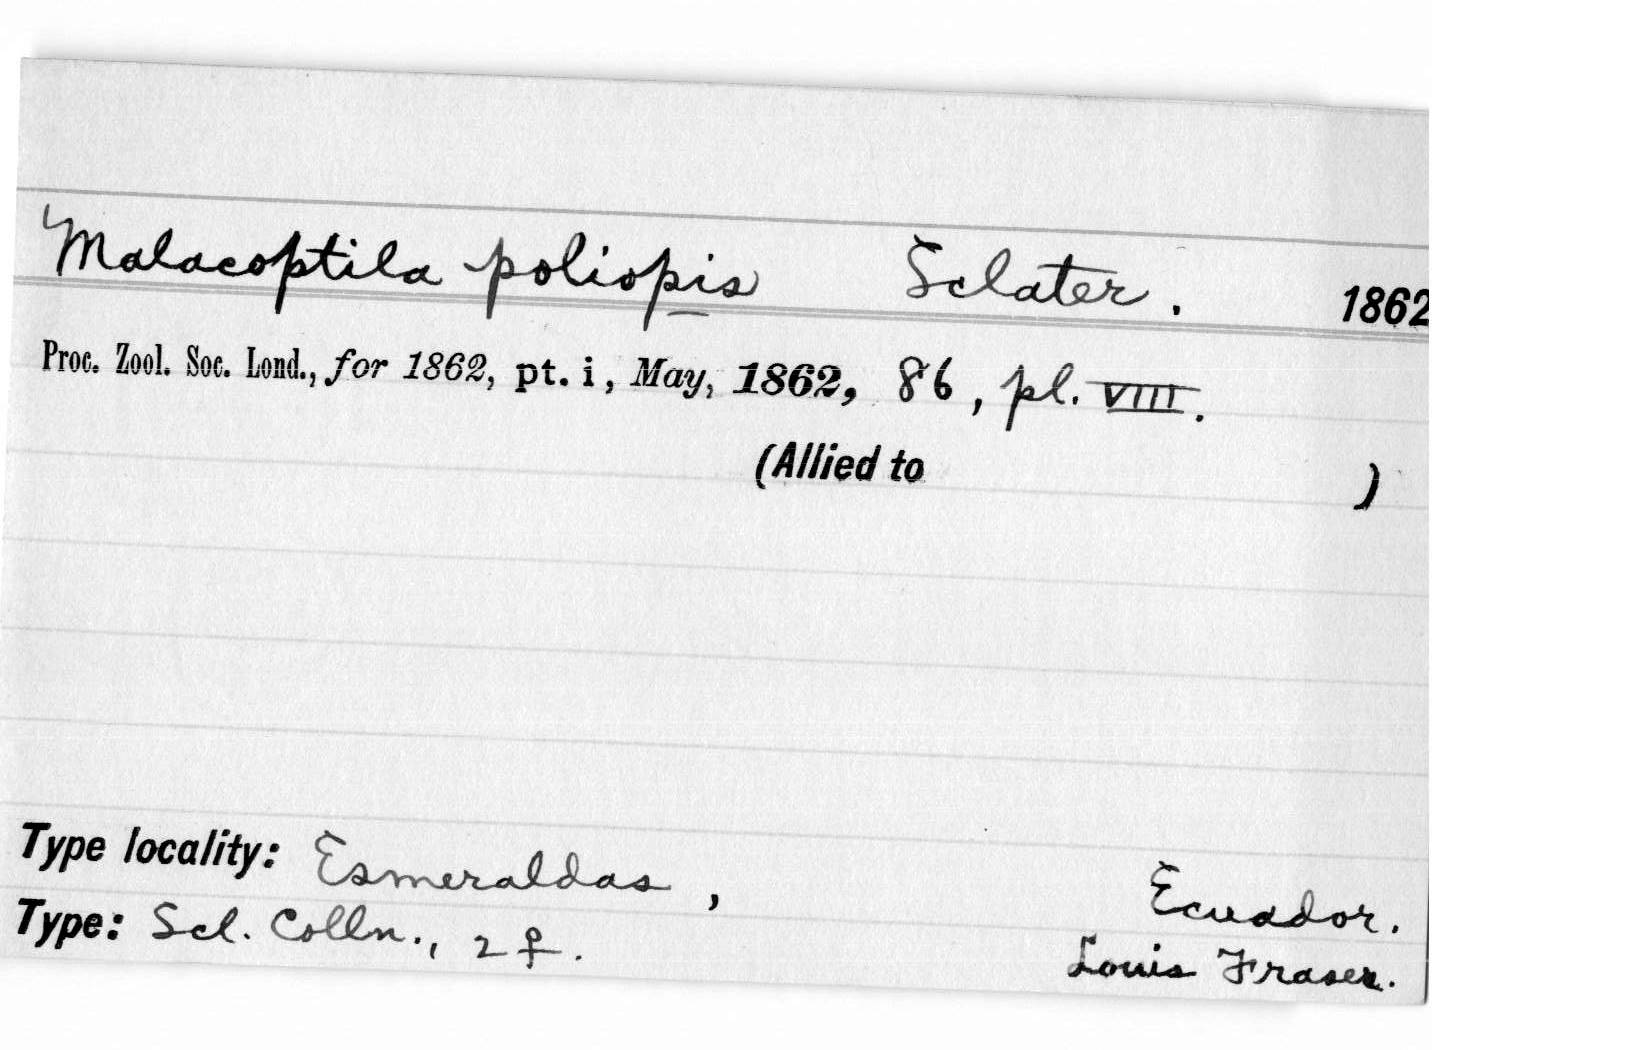 Malacoptila poliopis Sclater. 1862
Proc. Zool. Soc. Lond., for 1862, pt. i, May, 1862, 86, pl. VIII.
(Allied to )
Type locality: Esmeraldas, Ecuador.
Type: Scl. Colln., 2 ♀. Louis Fraser.